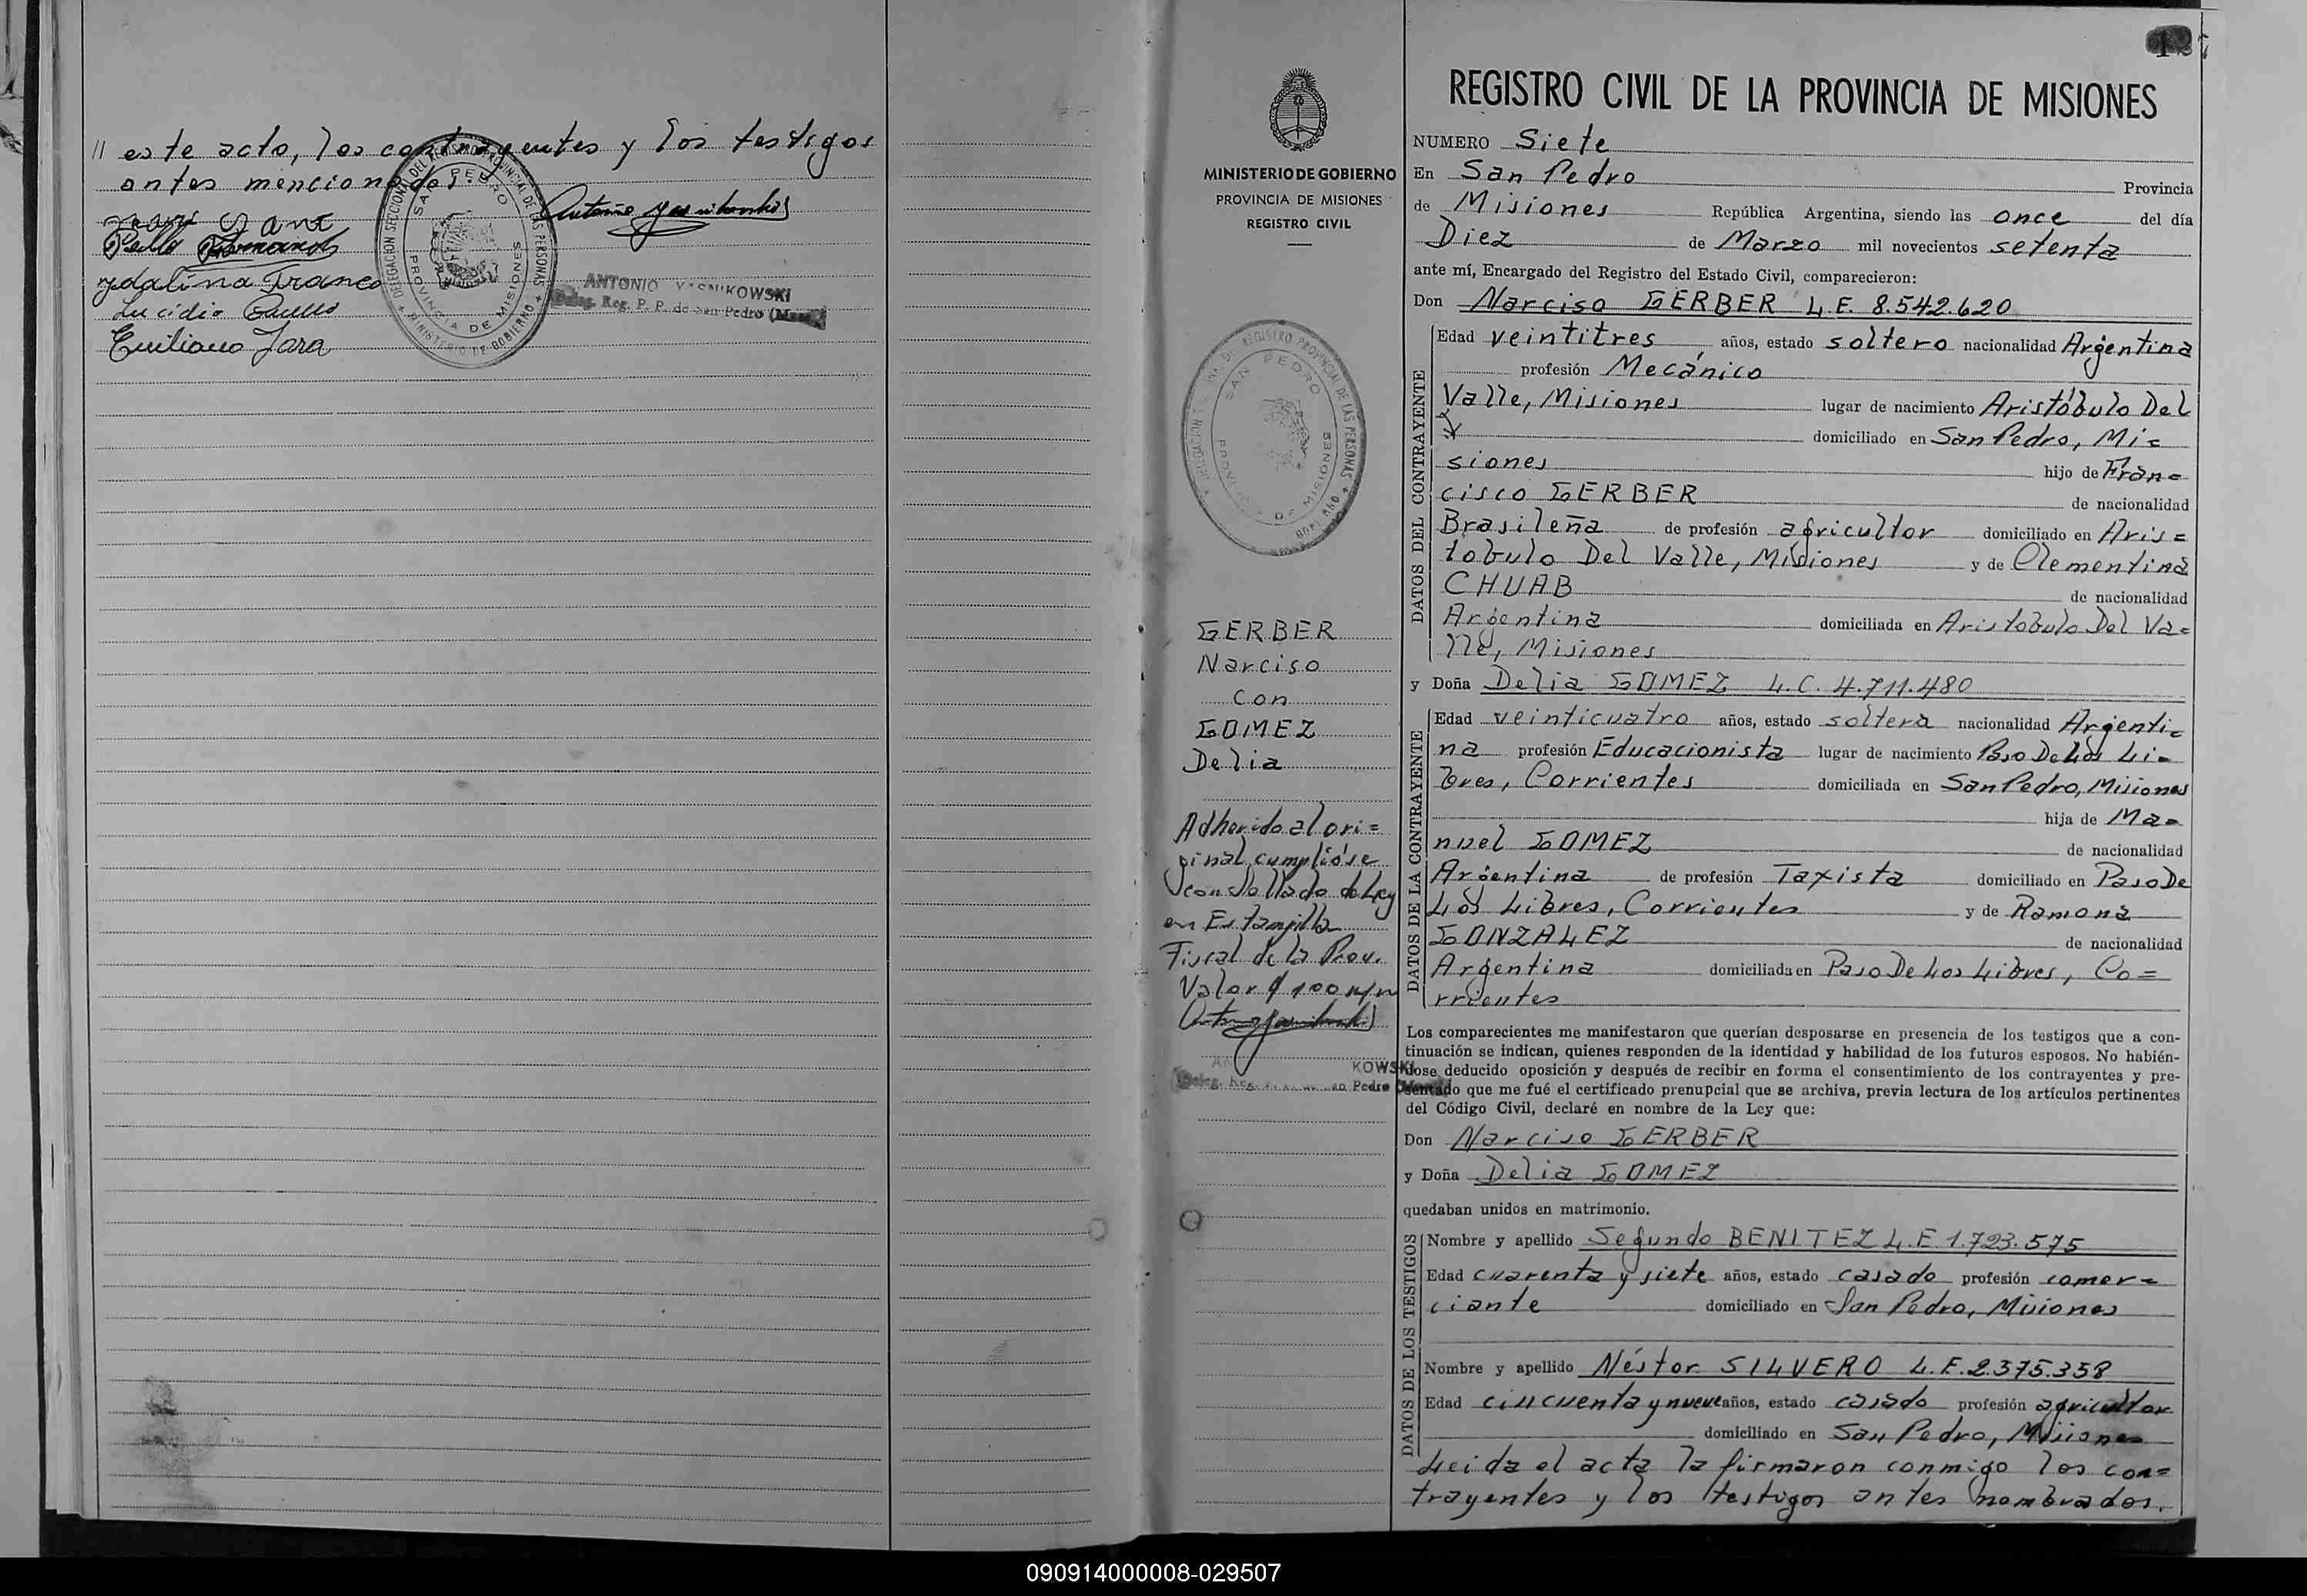 // este acto, los contrayentes y los testigos
antes mencionados.
Ydalina Franco
Lucidio
Emiliano Jara
DELEGACION SECCIONAL DEL REGISTRO PROVINCIAL DE LAS PERSONAS
SAN PEDRO
PROVINCIA DE MISIONES
MINISTERIO DE GOBIERNO
ANTONIO YASNIKOWSKI
Deleg. Reg. P. P. de San Pedro (Mnes.)
MINISTERIO DE GOBIERNO
PROVINCIA DE MISIONES
REGISTRO CIVIL
SAN PEDRO
PROVINCIA DE MISIONES
GERBER
Narciso
con
GOMEZ
Delia
Adherido al ori=
ginal, cumplióse
con sellado de Ley
en Estampilla
Fiscal de la Prov.
Valor $ 100 m/n
KOWSKI
Deleg. Reg. San Pedro
REGISTRO CIVIL DE LA PROVINCIA DE MISIONES
NUMERO Siete
En San Pedro Provincia
de Misiones República Argentina, siendo las once del día
Diez de Marzo mil novecientos setenta
ante mí, Encargado del Registro del Estado Civil, comparecieron:
Don Narciso GERBER L.E. 8.542.620
DATOS DEL CONTRAYENTE
Edad veintitres años, estado soltero nacionalidad Argentina
profesión Mecánico
Valle, Misiones lugar de nacimiento Aristóbulo Del
domiciliado en San Pedro, Mi=
siones hijo de Fran=
cisco GERBER de nacionalidad
Brasileña de profesión agricultor domiciliado en Aris=
tobulo Del Valle, Misiones y de Clementina
CHUAB de nacionalidad
Argentina domiciliada en Aristobulo Del Va=
lle, Misiones
y Doña Delia GOMEZ L.C. 4.711.480
DATOS DE LA CONTRAYENTE
Edad veinticuatro años, estado soltera nacionalidad Argenti=
na profesión Educacionista lugar de nacimiento Paso De Los Li=
bres, Corrientes domiciliada en San Pedro, Misiones
hija de Ma=
nuel GOMEZ de nacionalidad
Argentina de profesión Taxista domiciliado en Paso De
Los Libres, Corrientes y de Ramona
GONZALEZ de nacionalidad
Argentina domiciliada en Paso De Los Libres, Co=
rrientes
Los comparecientes me manifestaron que querían desposarse en presencia de los testigos que a con-
tinuación se indican, quienes responden de la identidad y habilidad de los futuros esposos. No habién-
dose deducido oposición y después de recibir en forma el consentimiento de los contrayentes y pre-
sentado que me fué el certificado prenupcial que se archiva, previa lectura de los artículos pertinentes
del Código Civil, declaré en nombre de la Ley que:
Don Narciso GERBER
y Doña Delia GOMEZ
quedaban unidos en matrimonio.
DATOS DE LOS TESTIGOS
Nombre y apellido Segundo BENITEZ L.E. 1.723.575
Edad cuarenta y siete años, estado casado profesión comer=
ciante domiciliado en San Pedro, Misiones
Nombre y apellido Néstor SILVERO L.E. 2.375.358
Edad cincuenta y nueve años, estado casado profesión agricultor
domiciliado en San Pedro, Misiones
Leida el acta la firmaron conmigo los con=
trayentes y los testigos antes nombrados.
090914000008-029507